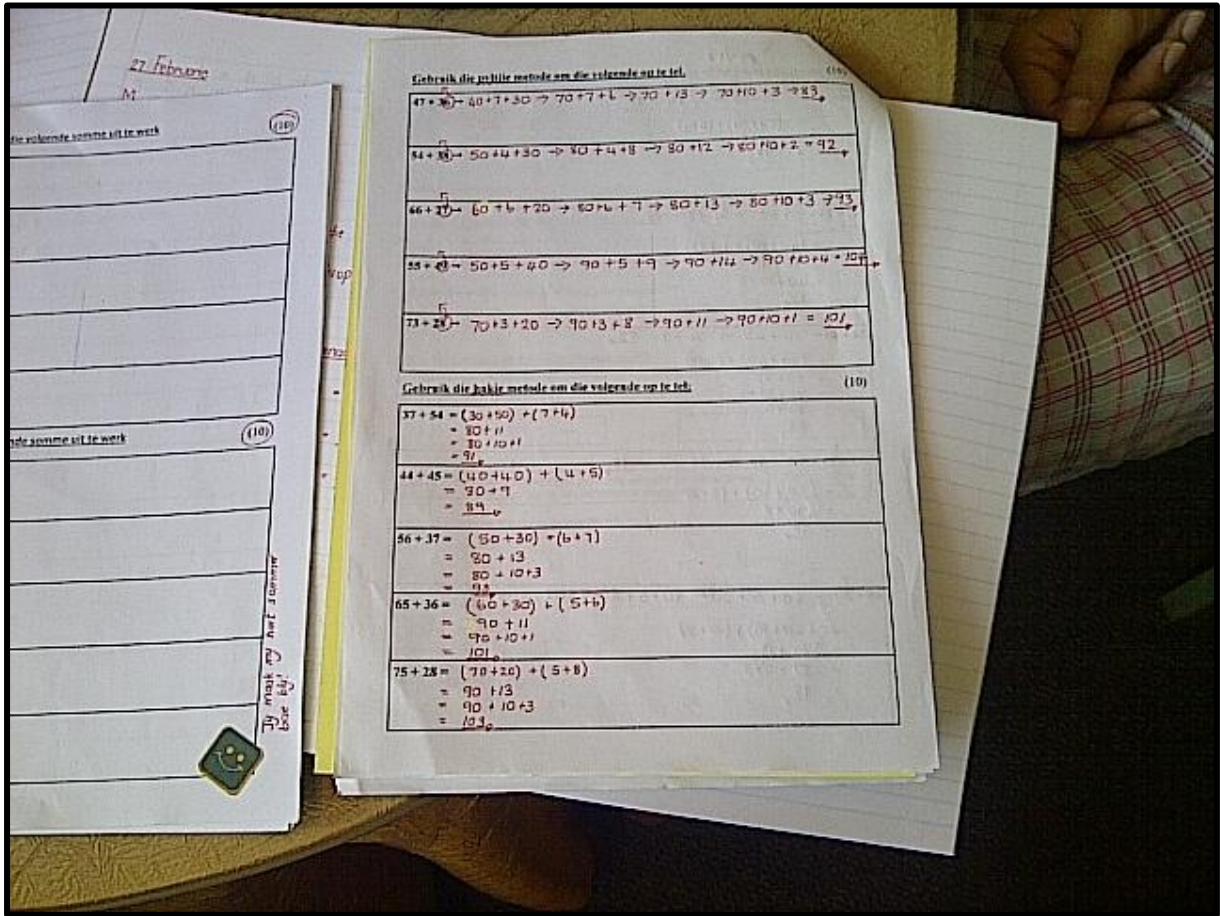 27 Februarie
M
die volgende somme uit te werk (10)
nde somme uit te werk (10)
Jy maak my hart somme
bae bly!
Gebruik die pyltjie metode om die volgende op te tel. (10)
47 + 36 → 40+7+30 → 70+7+6 → 70+13 → 70+10+3 → 83
54 + 38 → 50+4+30 → 80+4+8 → 80+12 → 80+10+2 = 92
66 + 27 → 60+6+20 → 80+6+7 → 80+13 → 80+10+3 → 93
55 + 49 → 50+5+40 → 90+5+9 → 90+14 → 90+10+4 = 104
73 + 28 → 70+3+20 → 90+3+8 → 90+11 → 90+10+1 = 101
Gebruik die hakie metode om die volgende op te tel: (10)
37 + 54 = (30+50) + (7+4)
= 80+11
= 80+10+1
= 91
44 + 45 = (40+40) + (4+5)
= 80+9
= 89
56 + 37 = (50+30) + (6+7)
= 80+13
= 80+10+3
= 93
65 + 36 = (60+30) + (5+6)
= 90+11
= 90+10+1
= 101
75 + 28 = (70+20) + (5+8)
= 90+13
= 90+10+3
= 103